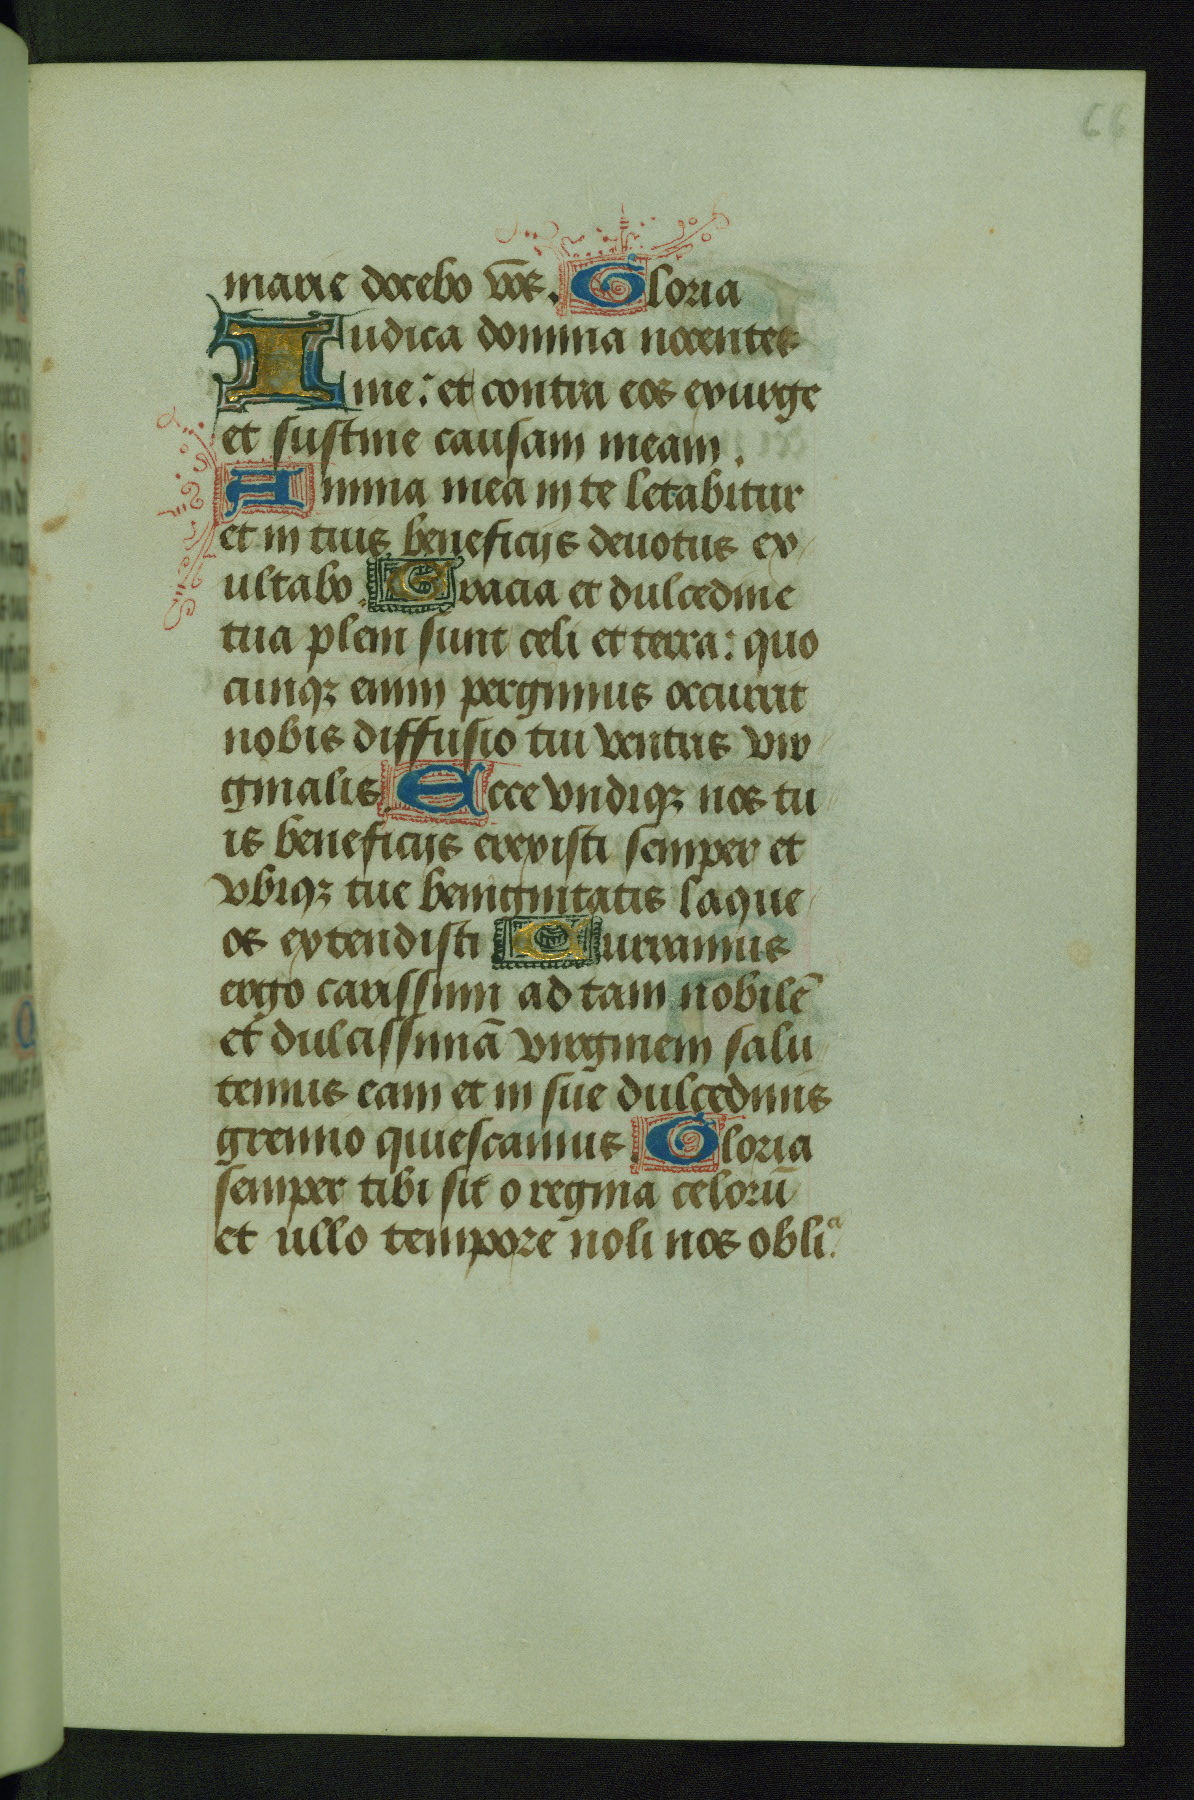 66
marie docebo vo̅s. Gloria
Iudica domina nocentes
me: et contra eos exurge
et sustine causam meam.
Anima mea in te letabitur
et in tuis beneficijs deuotus ex
ultabo. Gracia et dulcedine
tua pleni sunt celi et terra: quo
cunqꝫ enim pergimus occurrit
nobis diffusio tui ventris vir
ginalis. Ecce vndiqꝫ nos tu
is beneficijs erexisti semper et
vbiqꝫ tue benignitatis laque
os extendisti Curramus
ergo carissimi ad tam nobile̅
et dulcissima̅ virginem salu
temus eam et in sue dulcedinis
gremio quiescamus. Gloria
semper tibi sit o regina celoru̅
et ullo tempore noli nos obliᵃ.